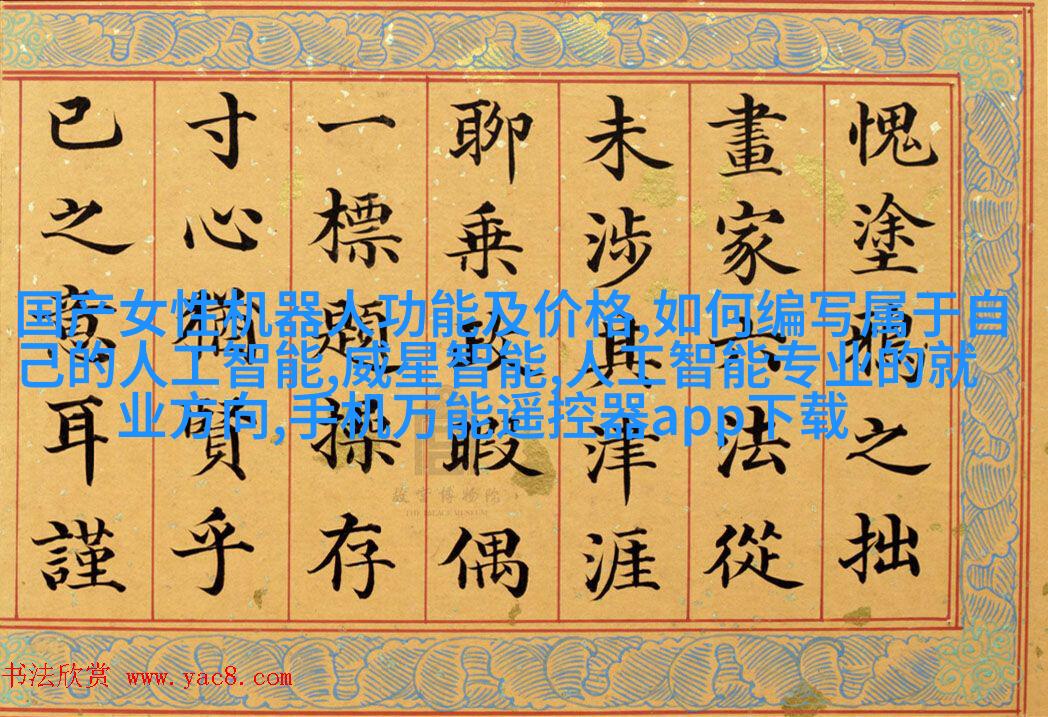 愧塗鴉之拙
畫家六法從
未涉其津涯
聊乘政暇偶
一標題操存
寸心猶賢乎
已之意耳謹
国产女性机器人功能及价格,如何编写属于自
己的人工智能,威星智能,人工智能专业的就
业方向,手机万能遥控器app下载
故宫博物院
THE PALACE MUSEUM
书法欣赏 www.yac8.com